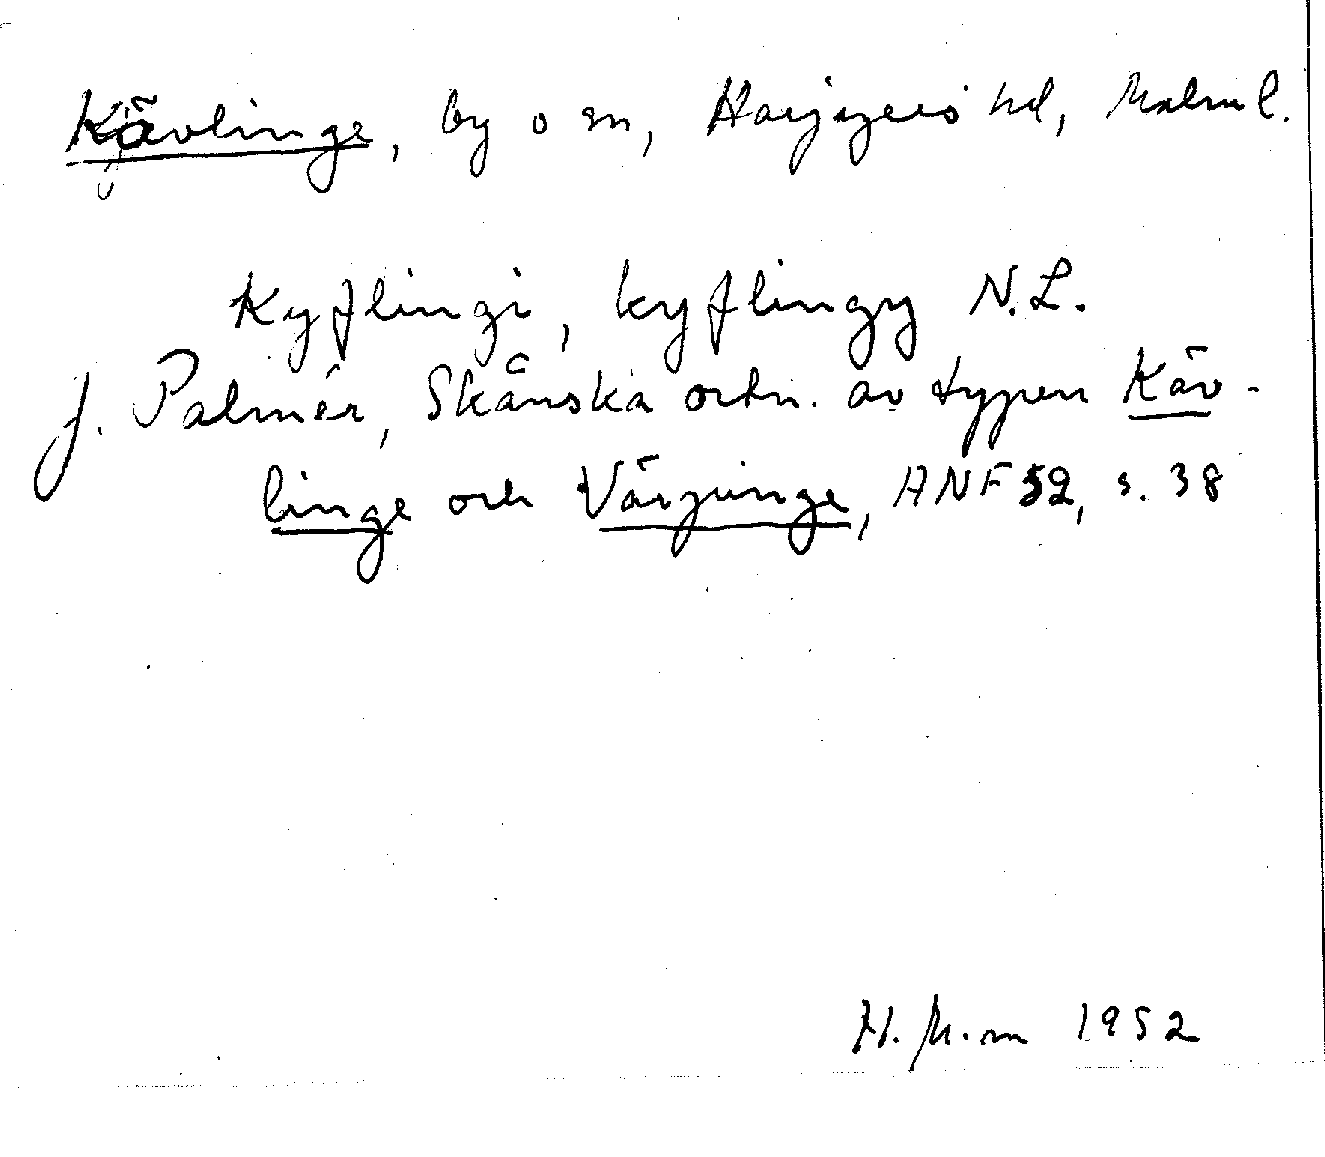 Kävlinge, by o sn, Harjagers hd, Malm l.
Kyflingi, kyflingy N.L.
J. Palmér, Skånska ortn. av typen Käv-
linge och Värpinge, ANF 52, s. 38
H. M.m 1952